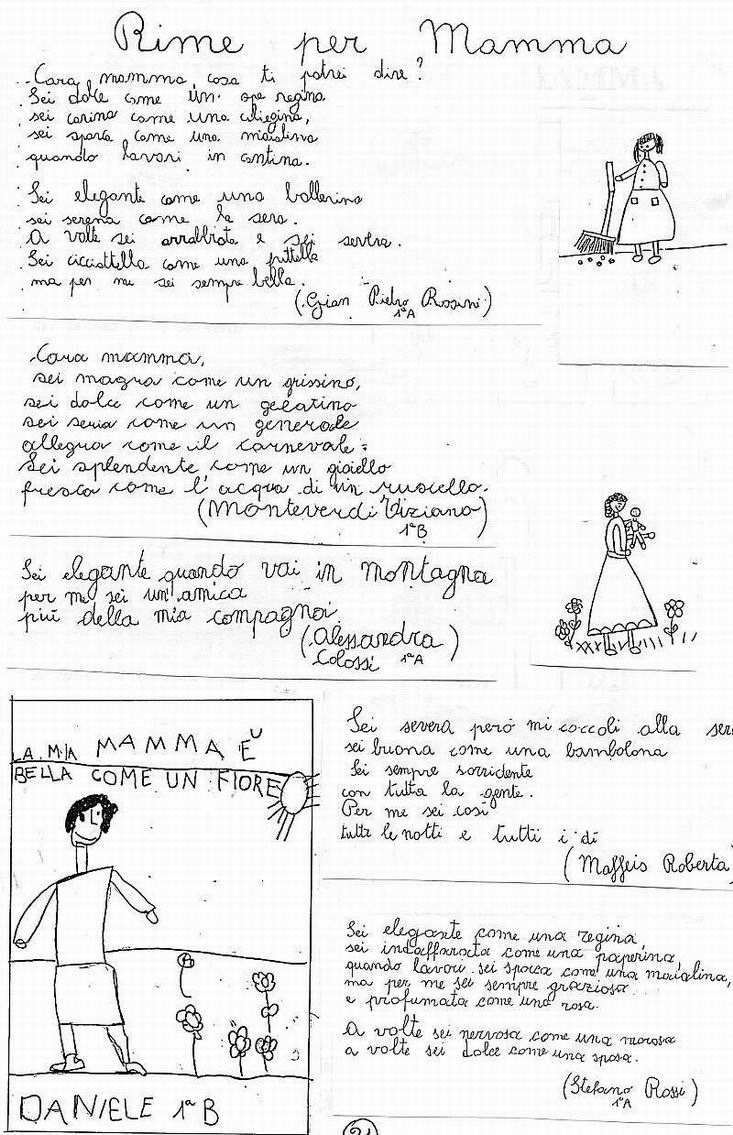 Rime per Mamma
Cara mamma cosa ti potrei dire?
Sei dolce come un' ape regina
sei carina come una ciliegina,
sei sporca come una maialina
quando lavori in cantina.
Sei elegante come una ballerina
sei serena come la sera.
A volte sei arrabbiata e sei severa.
Sei cicciottella come una frittella
ma per me sei sempre bella.
(Gian Pietro Rossini)
1ªA
Cara mamma,
sei magra come un grissino,
sei dolce come un gelatino
sei seria come un generale
allegra come il carnevale.
Sei splendente come un gioiello
fresca come l'acqua di un ruscello.
(Monteverdi Viziano)
1ªB
Sei elegante quando vai in montagna
per me sei un'amica
più della mia compagna
(Alessandra
Colossi 1ªA)
LA MIA MAMMA È
BELLA COME UN FIORE
DANIELE 1ªB
Sei severa però mi coccoli alla
sei buona come una bambolona
Sei sempre sorridente
con tutta la gente.
Per me sei così
tutte le notti e tutti i dì
(Maffeis Roberta)
Sei elegante come una regina,
sei indaffarata come una paperina,
quando lavori sei sporca come una maialina,
ma per me sei sempre graziosa
e profumata come una rosa.
A volte sei nervosa come una morosa
a volte sei dolce come una sposa.
(Stefano Rossi)
1ªA